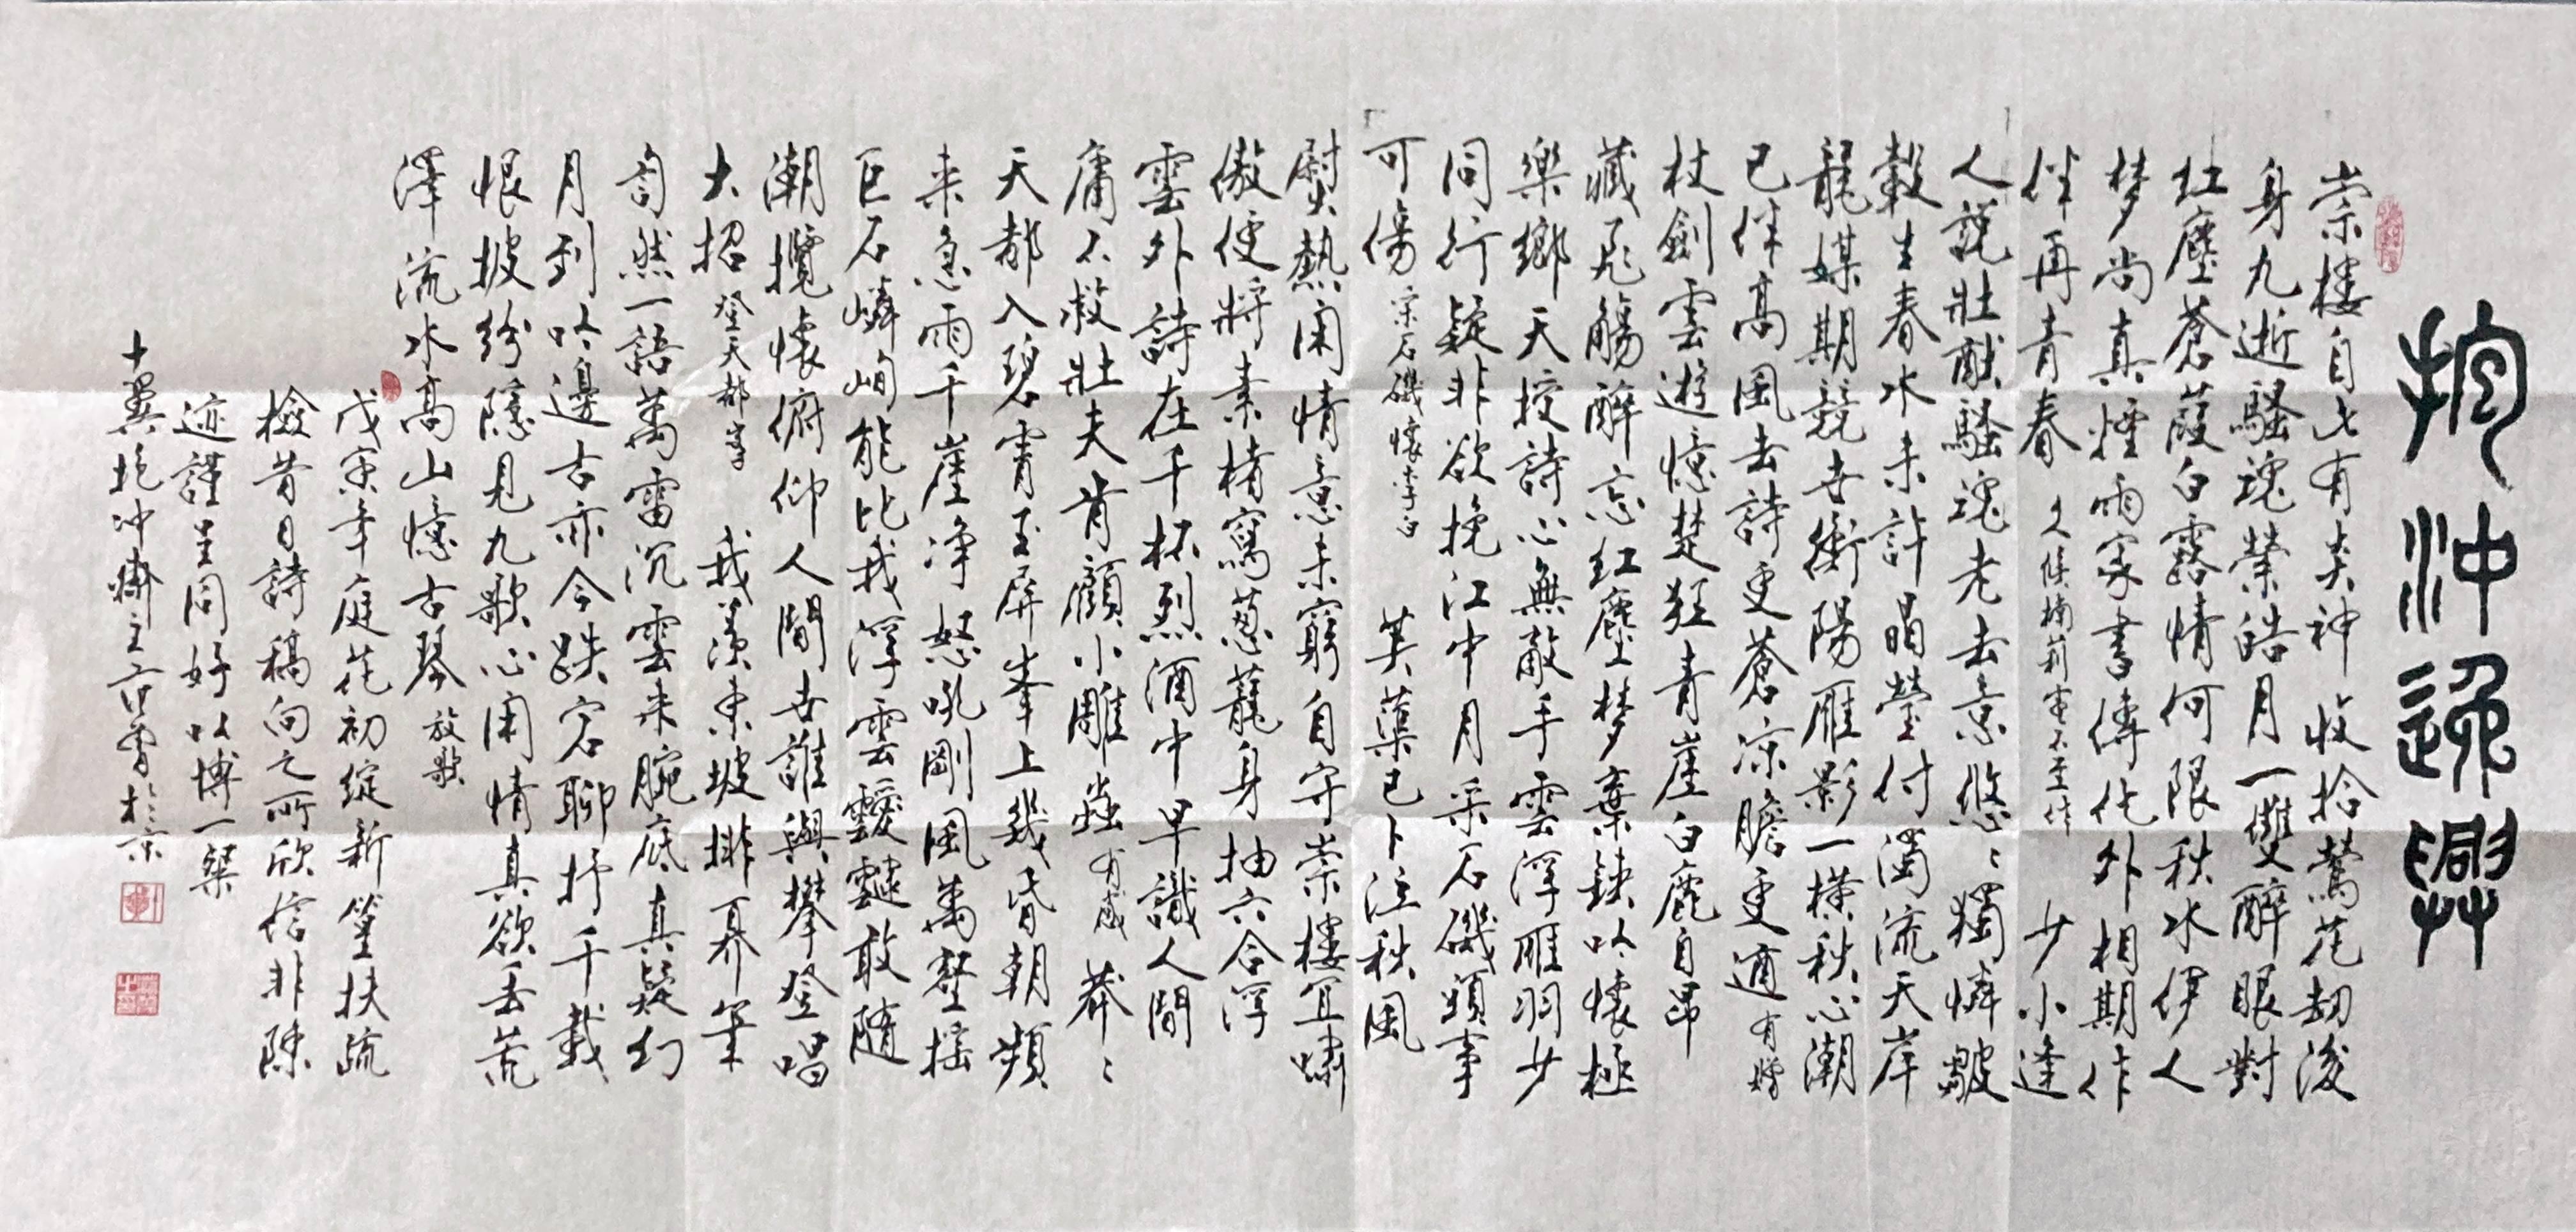 抱沖逸興
崇樓自古有炎神收拾鶯花劫後
身九逝騷魂縈皓月一雙醉眼對
紅塵蒼葭白露情何限秋水伊人
梦尚真煙雨家書傳化外相期作
伴再青春 久候楠莉電不至作 少小逢
人說壯猷騷魂老去意悠々獨憐皺
縠生春水未許昌瑩付濁流天岸
龍媒期競世衡陽雁影一橫秋心潮
已伴高風去詩更蒼涼膽更遒 有贈
杖劍雲遊憶楚狂青崖白鹿自昂
藏飛觴醉忘紅塵梦棄鋏吟懷極
樂鄉天授詩心無敵手雲浮雁羽少
同行疑非欲挽江中月采石磯頭事
可傷 采石磯懷李白 萁葉已卜泣秋風
慰熱閑情意未窮自守崇樓宜嘯
傲便將素楮寫蔥蘢身抽六合浮
雲外詩在千杯烈酒中早識人間
庸不救壯夫肯顧小雕蟲 有感 莽々
天都入碧霄玉屏峯上幾昏朝頻
来急雨千崖淨怒吼剛風萬壑搖
巨石嶙峋能比我浮雲靉靆敢隨
潮攬懷俯仰人間世誰與攀登唱
大招 登天都峯 我羨東坡排奡筆
訇然一語萬雷沉雲来腕底真疑幻
月到吟邊古亦今跌宕聊抒千載
恨披紛隱見九歌心閑情真欲去荒
澤流水高山憶古琴 放歌
戊寅年庭花初綻新篁扶疏
檢昔日詩稿向之所欣信非陳
迹謹呈同好以博一粲
十翼抱沖齋主范曾於京